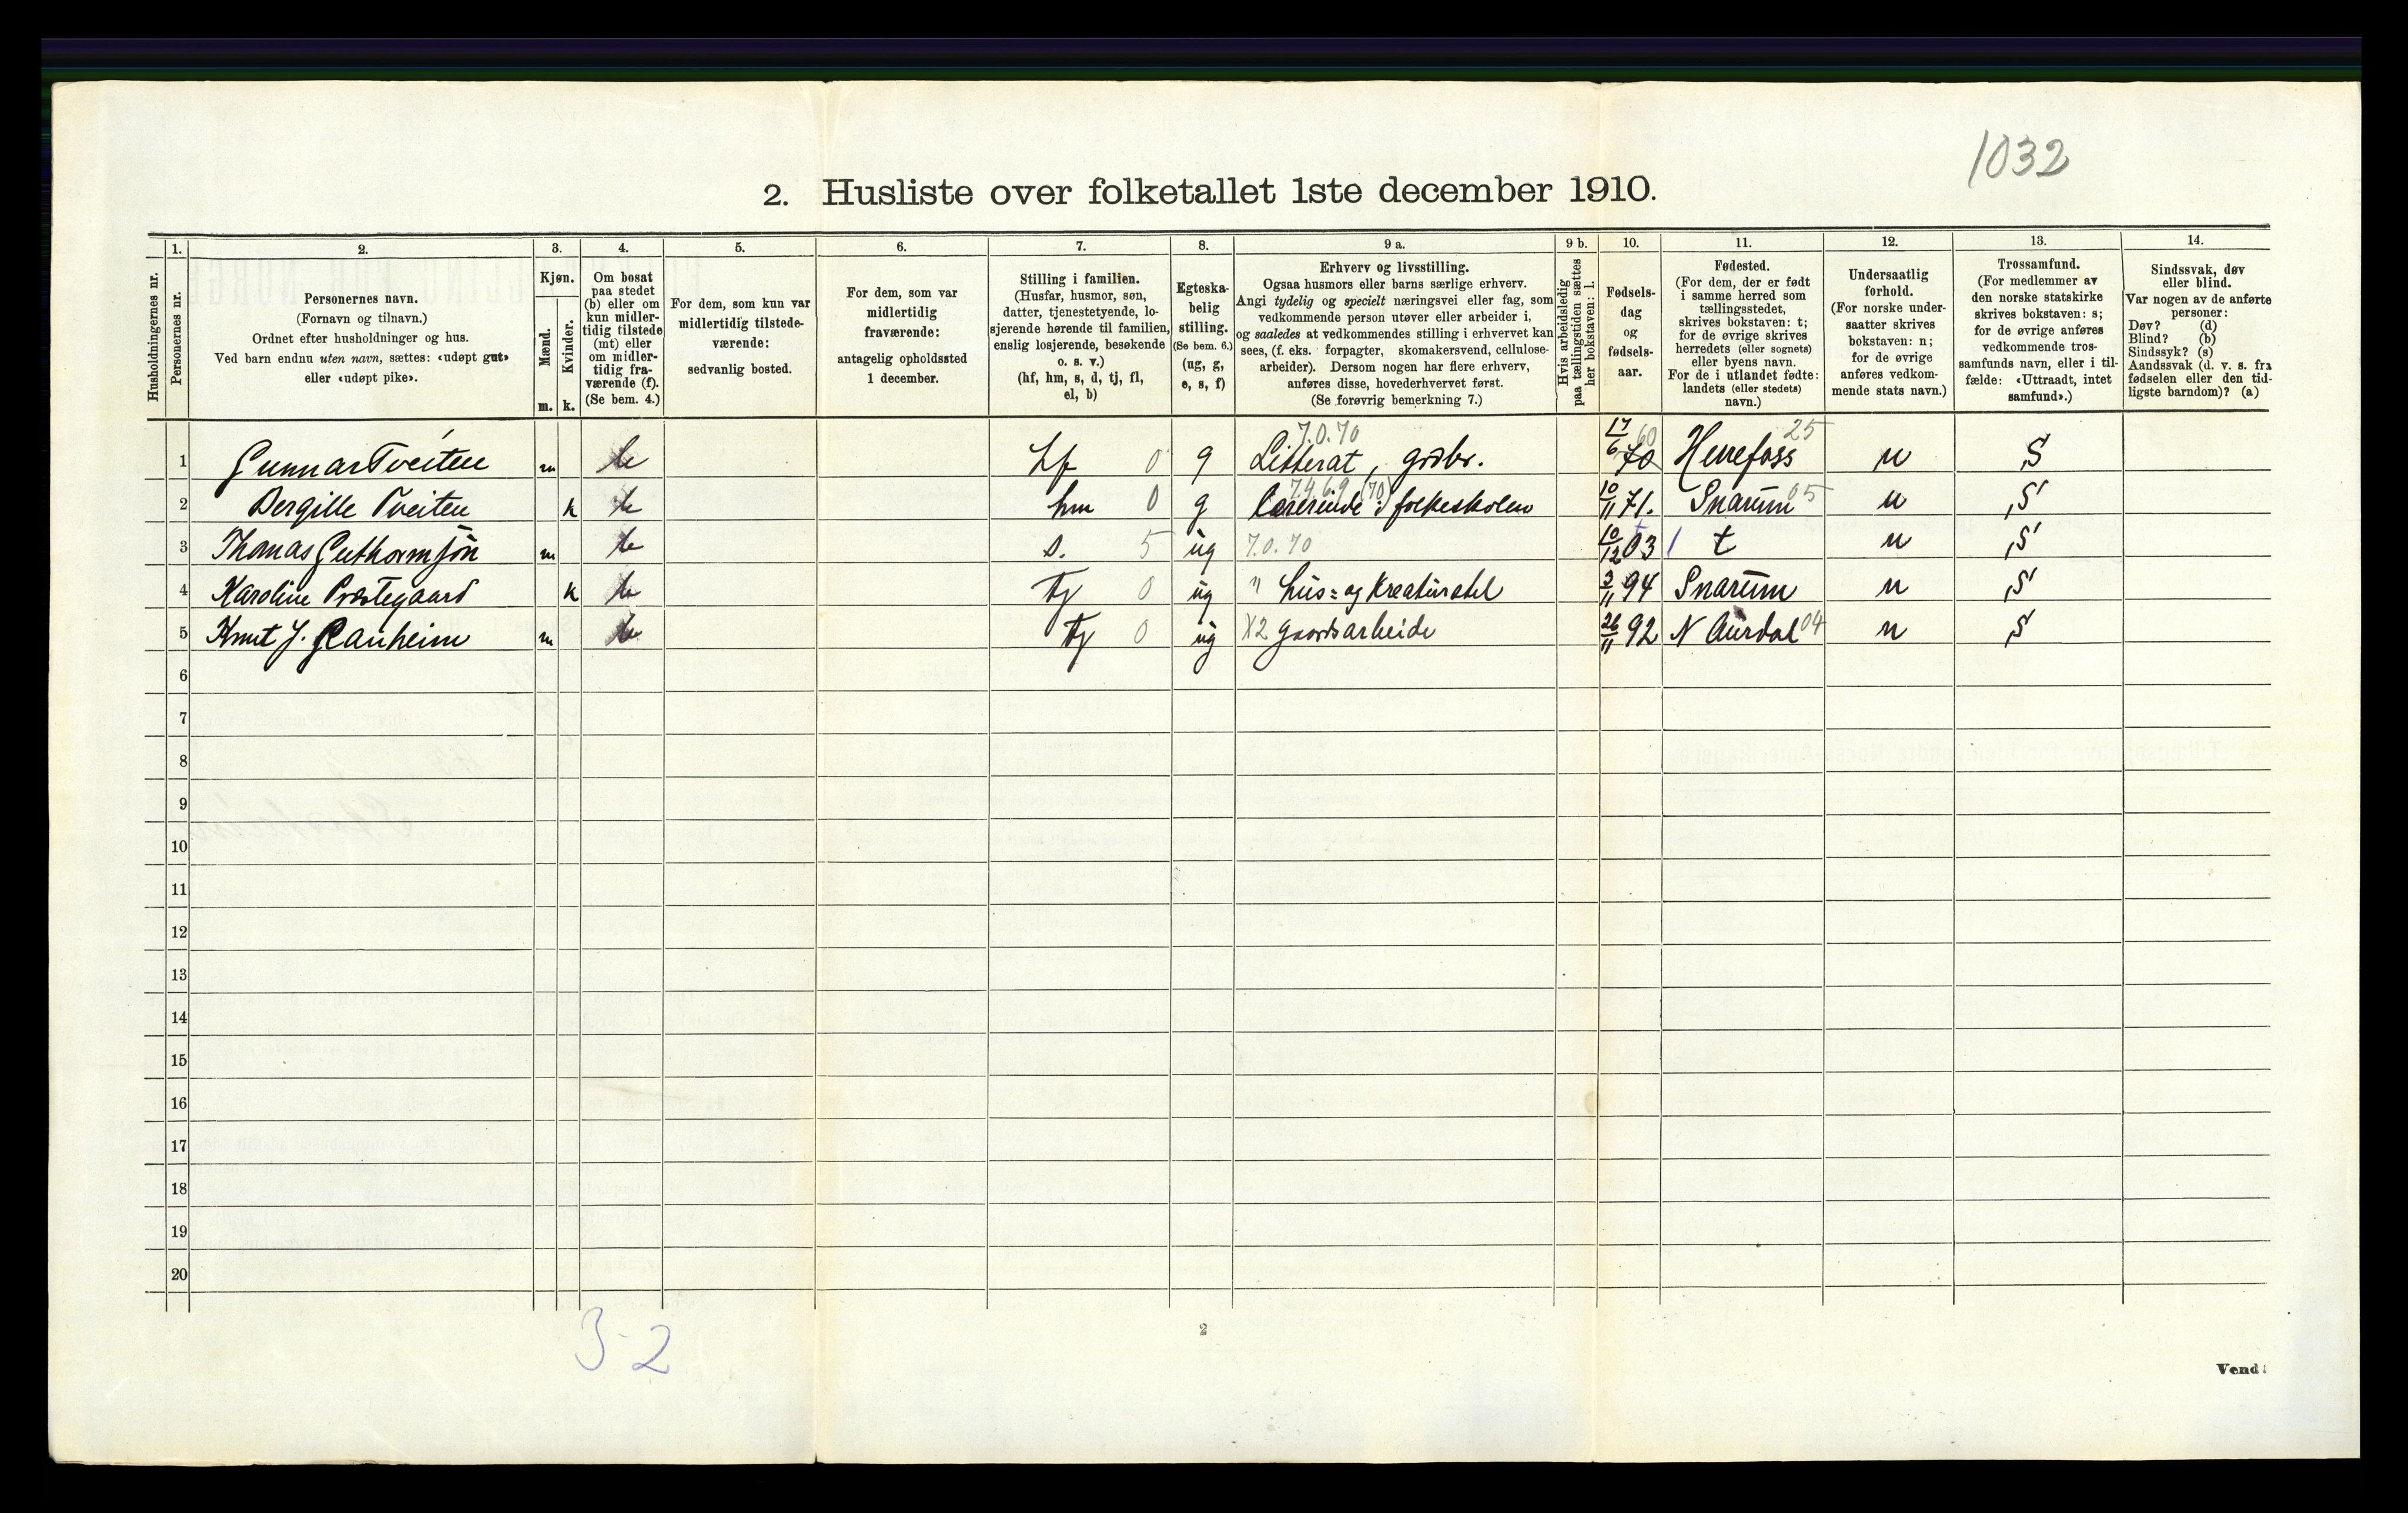 1032
2. Husliste over folketallet 1ste december 1910.
Husholdningernes nr.
1. Personernes nr.
2. Personernes navn.
(Fornavn og tilnavn.)
Ordnet efter husholdninger og hus.
Ved barn endnu uten navn, sættes: «udøpt gut»
eller «udøpt pike».
3. Kjøn.
Mænd. Kvinder.
m. k.
4. Om bosat
paa stedet
(b) eller om
kun midler-
tidig tilstede
(mt) eller
om midler-
tidig fra-
værende (f).
(Se bem. 4.)
5. For dem, som kun var
midlertidig tilstede-
værende:
sedvanlig bosted.
6. For dem, som var
midlertidig
fraværende:
antagelig opholdssted
1 december.
7. Stilling i familien.
(Husfar, husmor, søn,
datter, tjenestetyende, lo-
sjerende hørende til familien,
enslig losjerende, besøkende
o. s. v.)
(hf, hm, s, d, tj, fl,
el, b)
8. Egteska-
belig
stilling.
(Se bem. 6.)
(ug, g,
e, s, f)
9 a. Erhverv og livsstilling.
Ogsaa husmors eller barns særlige erhverv.
Angi tydelig og specielt næringsvei eller fag, som
vedkommende person utøver eller arbeider i,
og saaledes at vedkommendes stilling i erhvervet kan
sees, (f. eks. forpagter, skomakersvend, cellulose-
arbeider). Dersom nogen har flere erhverv,
anføres disse, hovederhvervet først.
(Se forøvrig bemerkning 7.)
9 b. Hvis arbeidsledig
paa tællingstiden sættes
her bokstaven: l.
10. Fødsels-
dag
og
fødsels-
aar.
11. Fødested.
(For dem, der er født
i samme herred som
tællingsstedet,
skrives bokstaven: t;
for de øvrige skrives
herredets (eller sognets)
eller byens navn.
For de i utlandet fødte:
landets (eller stedets)
navn.)
12. Undersaatlig
forhold.
(For norske under-
saatter skrives
bokstaven: n;
for de øvrige
anføres vedkom-
mende stats navn.)
13. Trossamfund.
(For medlemmer av
den norske statskirke
skrives bokstaven: s;
for de øvrige anføres
vedkommende tros-
samfunds navn, eller i til-
fælde: «Uttraadt, intet
samfund».)
14. Sindssvak, døv
eller blind.
Var nogen av de anførte
personer:
Døv? (d)
Blind? (b)
Sindssyk? (s)
Aandssvak (d. v. s. fra
fødselen eller den tid-
ligste barndom)? (a)
7.0.70 60 25
1 Gunnar Tveiten m b hf 0 g Litterat, grdbr. 17/6 70 Herefoss n S
7.4.6.9 (70) 05
2 Bergitte Tveiten k b hm 0 g Lærerinde i folkeskolen 10/11 71. Snarum n S
3 Thomas Guthormsön m b s. 5 ug 7.0.70 10/12 03 t n S
4 Karoline Præstegaard k b tj 0 ug " hus= og kreaturstel 3/11 94 Snarum n S
5 Knut J. Ranheim m b tj 0 ug X2 gaardsarbeide 26/11 92 N Aurdal 04 n S
6
7
8
9
10
11
12
13
14
15
16
17
18
19
20
3-2
2
Vend!